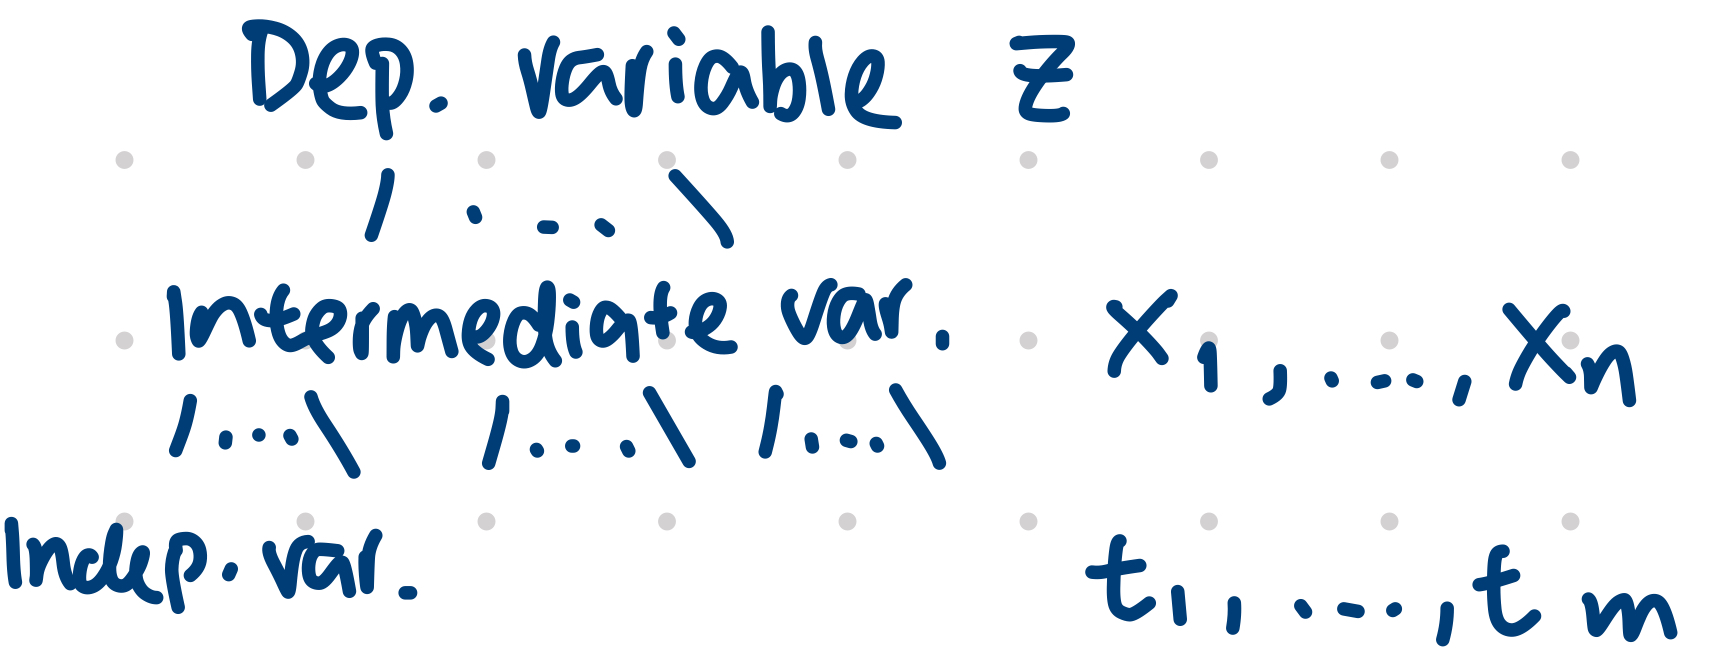 Dep. variable z
/ . . . . \
Intermediate var. x1, ...., xn
/...\ /...\ /...\
Indep. var. t1, ...., tm